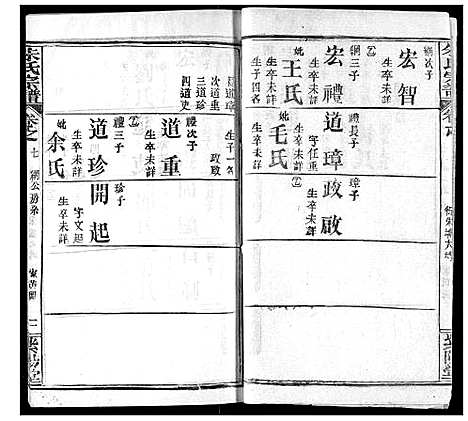 綱次子
宏智
生卒未詳
綱三子
宏禮
生卒未詳
妣王氏
生卒未詳
生子四名
長道璋
次道重
三道珍
四道史
禮長子
道璋
字任重
生卒未詳
妣毛氏
生卒未詳
生子一名
政啟
禮次子
道重
生卒未詳
禮三子
道珍
生卒未詳
妣余氏
生卒未詳
璋子
政啟
生卒未詳
珍子
開起
字文起
生卒未詳
朱氏宗譜
卷之
七
綱公房系
紫陽堂